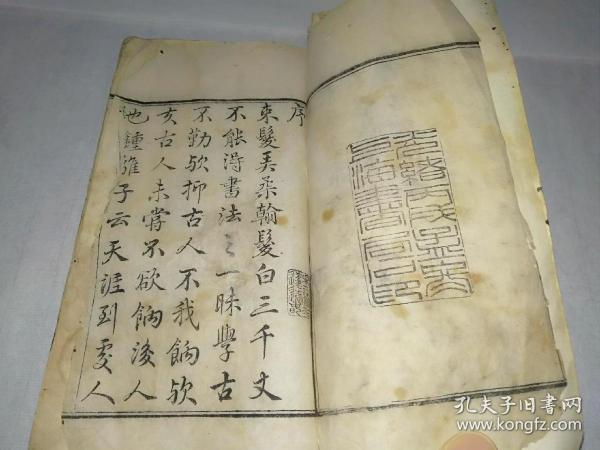 光緒丙戌孟
上海書局石印
序
束髮弄柔翰髮白三千丈
不能得書法之一昧學古
不勤欤抑古人不我餉欤
古人未嘗不欲餉後人
也鍾離子云天涯到處人
孔夫子旧書网
www.kongfz.com